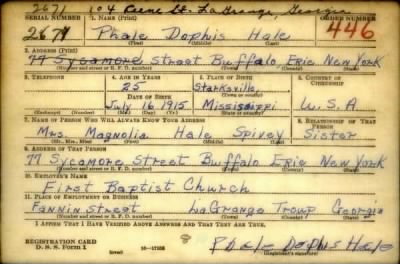 2671 104 Reene St. LaGrange, Georgia
SERIAL NUMBER 1. NAME (Print) ORDER NUMBER
2671 Phale Dophis Hale 446
(First) (Middle) (Last)
2. ADDRESS (Print)
77 Sycamore Street Buffalo Erie New York
(Number and street or R. F. D. number) (Town) (County) (State)
3. TELEPHONE 4. AGE IN YEARS 5. PLACE OF BIRTH 6. COUNTRY OF CITIZENSHIP
25 Starksville,
DATE OF BIRTH (Town or county)
July 16 1915 Mississippi U.S.A
(Exchange) (Number) (Mo.) (Day) (Yr.) (State or country)
7. NAME OF PERSON WHO WILL ALWAYS KNOW YOUR ADDRESS 8. RELATIONSHIP OF THAT PERSON
Mrs. Magnolia Hale Spivey Sister
(Mr., Mrs., Miss) (First) (Middle) (Last)
9. ADDRESS OF THAT PERSON
77 Sycamore Street Buffalo Erie New York
(Number and street or R. F. D. number) (Town) (County) (State)
10. EMPLOYER'S NAME
First Baptist Church
11. PLACE OF EMPLOYMENT OR BUSINESS
Fannin Street LaGrange Troup Georgia
(Number and street or R. F. D. number) (Town) (County) (State)
I AFFIRM THAT I HAVE VERIFIED ABOVE ANSWERS AND THAT THEY ARE TRUE.
REGISTRATION CARD
D. S. S. Form 1 16-17105 8 Phale Dophis Hale